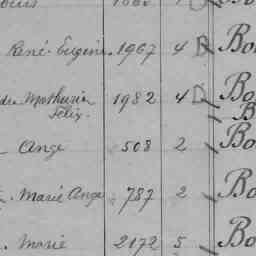 René-Eugène. 1967 4 Bo
Mathurin 1982 4 Bo
Félix. B
Ange 508 2 Bo
Marie Ange 787 2 Bo
Marie 2172 5 Bo